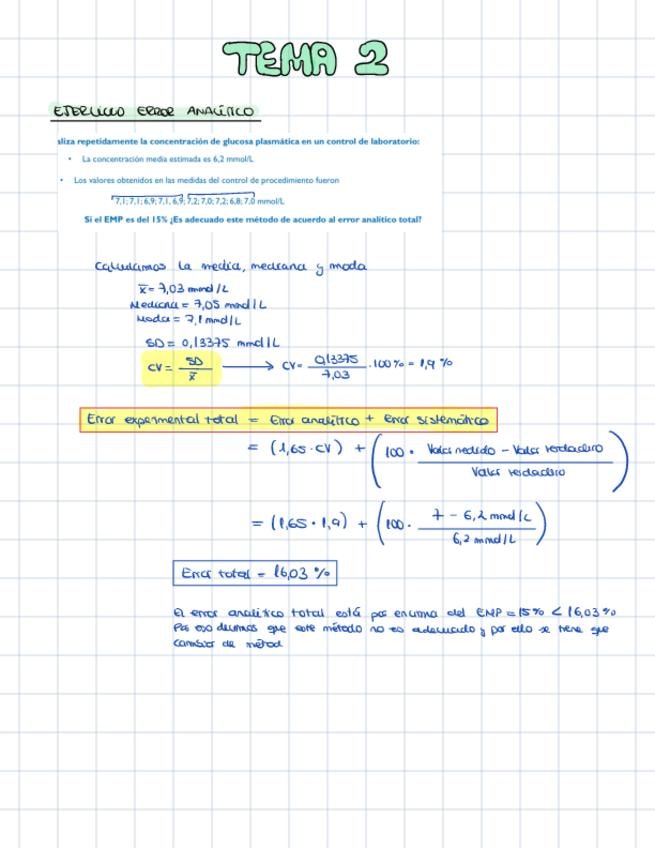 TEMA 2
EJERCICIO ERROR ANALÍTICO
aliza repetidamente la concentración de glucosa plasmática en un control de laboratorio:
• La concentración media estimada es 6,2 mmol/L
• Los valores obtenidos en las medidas del control de procedimiento fueron
7,1; 7,1; 6,9; 7,1, 6,9; 7,2; 7,0; 7,2; 6,8; 7,0 mmol/L
Si el EMP es del 15% ¿Es adecuado este método de acuerdo al error analítico total?
Calculamos la media, mediana y moda
x̄ = 7,03 mmol/L
Mediana = 7,05 mmol/L
Moda = 7,1 mmol/L
SD = 0,13375 mmol/L
CV = SD / x̄ → CV = 0,13375 / 7,03 · 100% = 1,9 %
Error experimental total = Error analítico + error sistemático
= (1,65 · CV) + (100 · Valor medido - Valor verdadero / Valor verdadero)
= (1,65 · 1,9) + (100 · 7 - 6,2 mmol/L / 6,2 mmol/L)
Error total = 16,03 %
El error analítico total está por encima del EMP = 15% < 16,03 %
Por eso decimos que este método no es adecuado y por ello se tiene que
cambiar de método